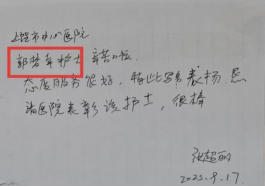 上饶市中心医院
郭碧年护士 辛苦了
态度服务很好,特此写表扬
请医院表彰该护士,很棒
张超丽
2025.9.17